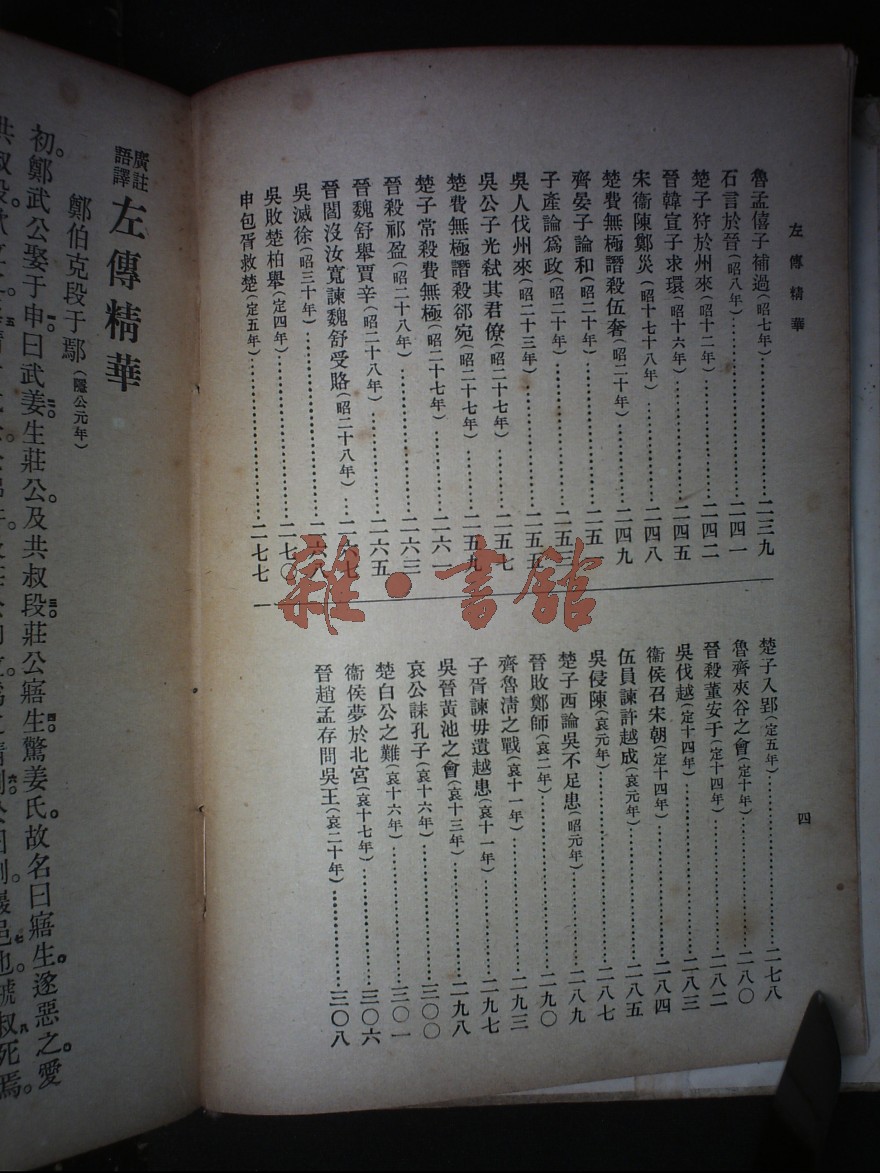 左傳精華
魯孟僖子補過(昭七年)…………二三九
石言於晉(昭八年)…………二四一
楚子狩於州來(昭十二年)…………二四二
晉韓宣子求環(昭十六年)…………二四五
宋衞陳鄭災(昭十七十八年)…………二四八
楚費無極譖殺伍奢(昭二十年)…………二四九
齊晏子論和(昭二十年)…………二五一
子產論爲政(昭二十年)…………二五三
吳人伐州來(昭二十三年)…………二五五
吳公子光弒其君僚(昭二十七年)…………二五七
楚費無極譖殺郤宛(昭二十七年)…………二五九
楚子常殺費無極(昭二十七年)…………二六一
晉殺祁盈(昭二十八年)…………二六三
晉魏舒舉賈辛(昭二十八年)…………二六五
晉閻沒汝寬諫魏舒受賂(昭二十八年)…二六七
吳滅徐(昭三十年)…………二六八
吳敗楚柏舉(定四年)…………二七〇
申包胥救楚(定五年)…………二七七
楚子入郢(定五年)…………二七八
魯齊夾谷之會(定十年)…………二八〇
晉殺董安于(定十四年)…………二八二
吳伐越(定十四年)…………二八三
衞侯召宋朝(定十四年)…………二八四
伍員諫許越成(哀元年)…………二八五
吳侵陳(哀元年)…………二八七
楚子西論吳不足患(昭元年)…………二八九
晉敗鄭師(哀二年)…………二九〇
齊魯淸之戰(哀十一年)…………二九三
子胥諫毋遺越患(哀十一年)…………二九七
吳晉黃池之會(哀十三年)…………二九八
哀公誄孔子(哀十六年)…………三〇〇
楚白公之難(哀十六年)…………三〇一
衞侯夢於北宮(哀十七年)…………三〇六
晉趙孟存問吳王(哀二十年)…………三〇八
四
雜·書館
廣註語譯 左傳精華
鄭伯克段于鄢(隱公元年)
初。鄭武公娶于申曰武姜生莊公。及共叔段莊公寤生驚姜氏。故名曰寤生。遂惡之。愛